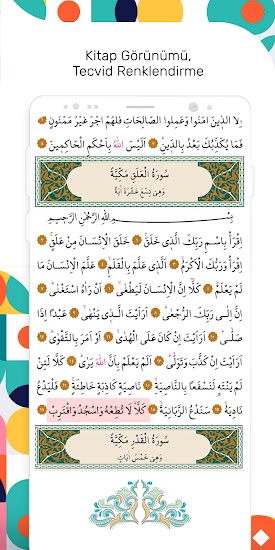 Kitap Görünümü,
Tecvid Renklendirme
اِلَّا الَّذ۪ينَ اٰمَنُوا وَعَمِلُوا الصَّالِحَاتِ فَلَهُمْ اَجْرٌ غَيْرُ مَمْنُونٍۜ
فَمَا يُكَذِّبُكَ بَعْدُ بِالدّ۪ينِۜ اَلَيْسَ اللّٰهُ بِاَحْكَمِ الْحَاكِم۪ينَ
سُورَةُ الْعَلَقِ مَكِّيَّةٌ
وَهِيَ تِسْعَ عَشْرَةَ اٰيَةً
بِسْمِ اللّٰهِ الرَّحْمٰنِ الرَّح۪يمِ
اِقْرَأْ بِاسْمِ رَبِّكَ الَّذ۪ي خَلَقَۚ خَلَقَ الْاِنْسَانَ مِنْ عَلَقٍۚ
اِقْرَأْ وَرَبُّكَ الْاَكْرَمُۙ اَلَّذ۪ي عَلَّمَ بِالْقَلَمِۙ عَلَّمَ الْاِنْسَانَ مَا
لَمْ يَعْلَمْۜ كَلَّٓا اِنَّ الْاِنْسَانَ لَيَطْغٰىۙ اَنْ رَاٰهُ اسْتَغْنٰىۜ
اِنَّ اِلٰى رَبِّكَ الرُّجْعٰىۜ اَرَاَيْتَ الَّذ۪ي يَنْهٰىۙ عَبْدًا اِذَا
صَلّٰىۜ اَرَاَيْتَ اِنْ كَانَ عَلَى الْهُدٰىۙ اَوْ اَمَرَ بِالتَّقْوٰىۜ
اَرَاَيْتَ اِنْ كَذَّبَ وَتَوَلّٰىۜ اَلَمْ يَعْلَمْ بِاَنَّ اللّٰهَ يَرٰىۜ كَلَّا لَئِنْ
لَمْ يَنْتَهِ لَنَسْفَعًا بِالنَّاصِيَةِۙ نَاصِيَةٍ كَاذِبَةٍ خَاطِئَةٍۚ فَلْيَدْعُ
نَادِيَهُۙ سَنَدْعُ الزَّبَانِيَةَۙ كَلَّاۜ لَا تُطِعْهُ وَاسْجُدْ وَاقْتَرِبْ
سُورَةُ الْقَدْرِ مَكِّيَّةٌ
وَهِيَ خَمْسُ اٰيَاتٍ